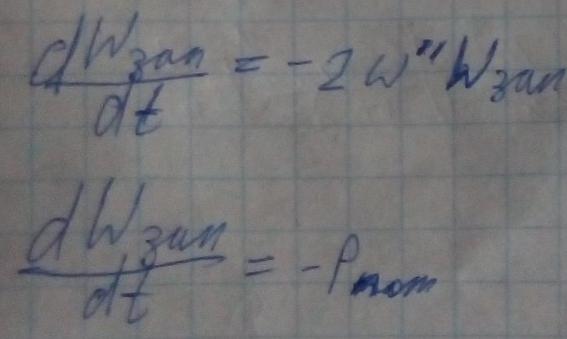 dW_зап/dt = -2ω''W_зап
dW_зап/dt = -P_пот